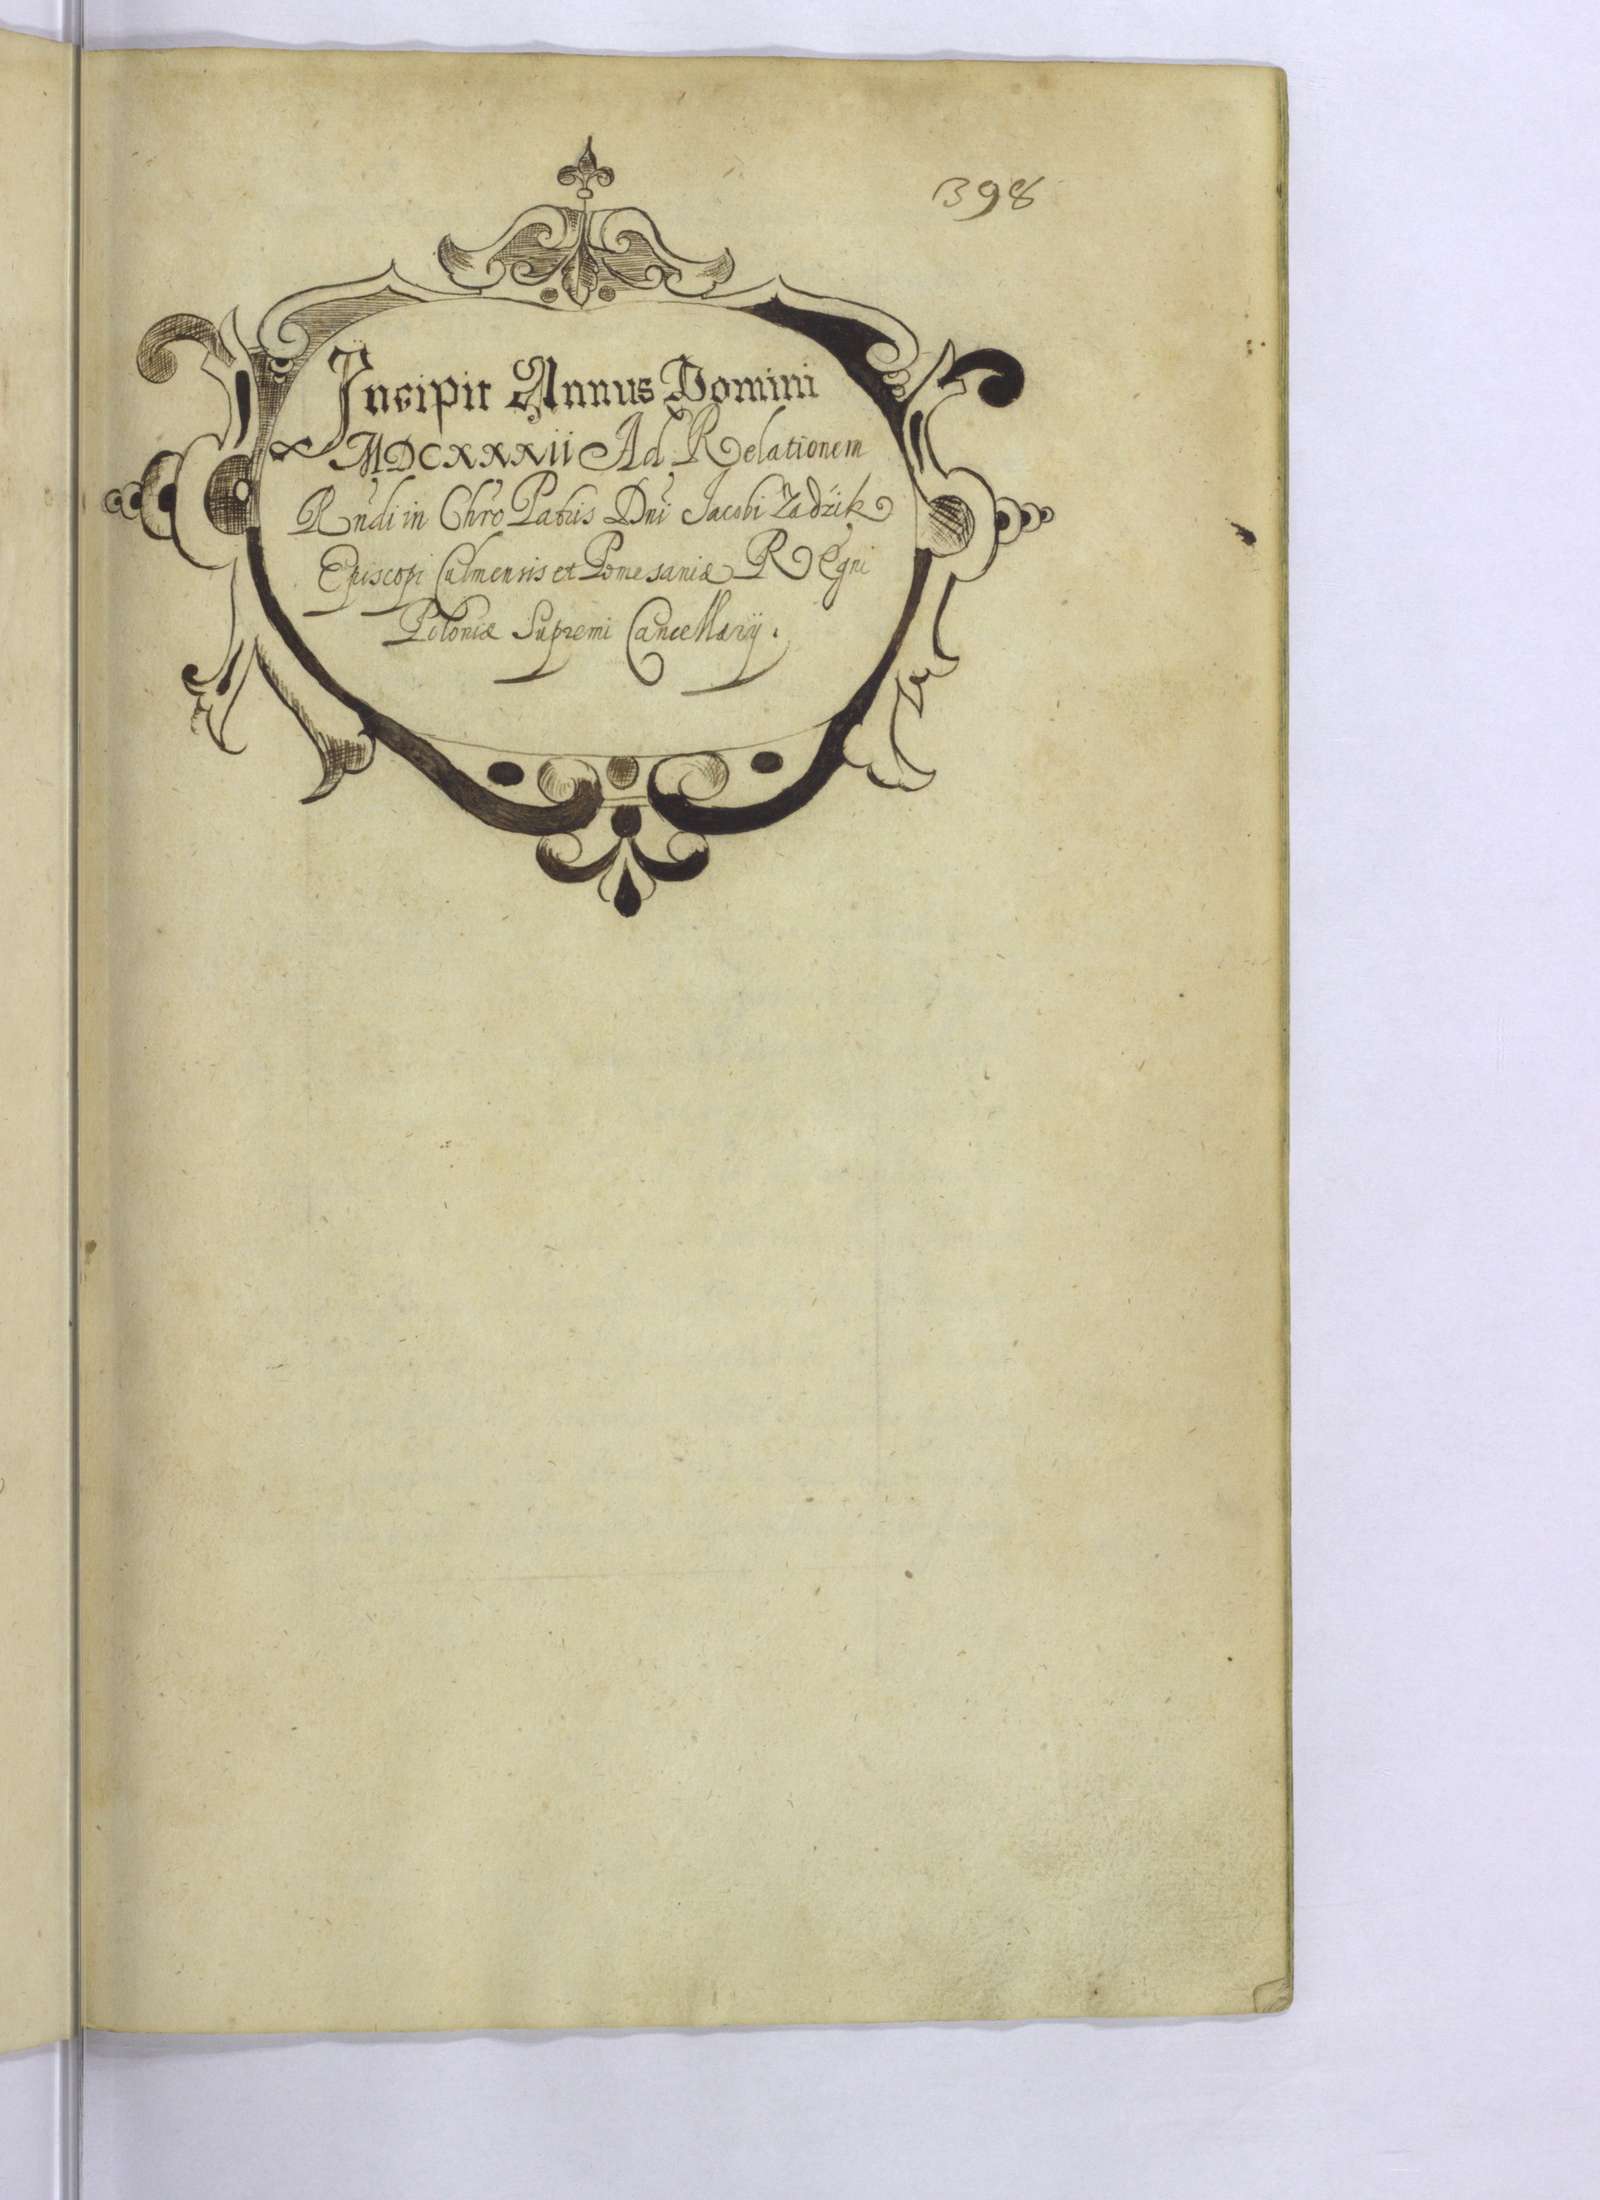 398
Incipit Annus Domini
MDCXXXII Ad Relationem
Rndi in Chro Patris Dni Jacobi Zadzik
Episcopi Culmensis et Pomesaniæ Regni
Poloniæ Supremi Cancellarij.